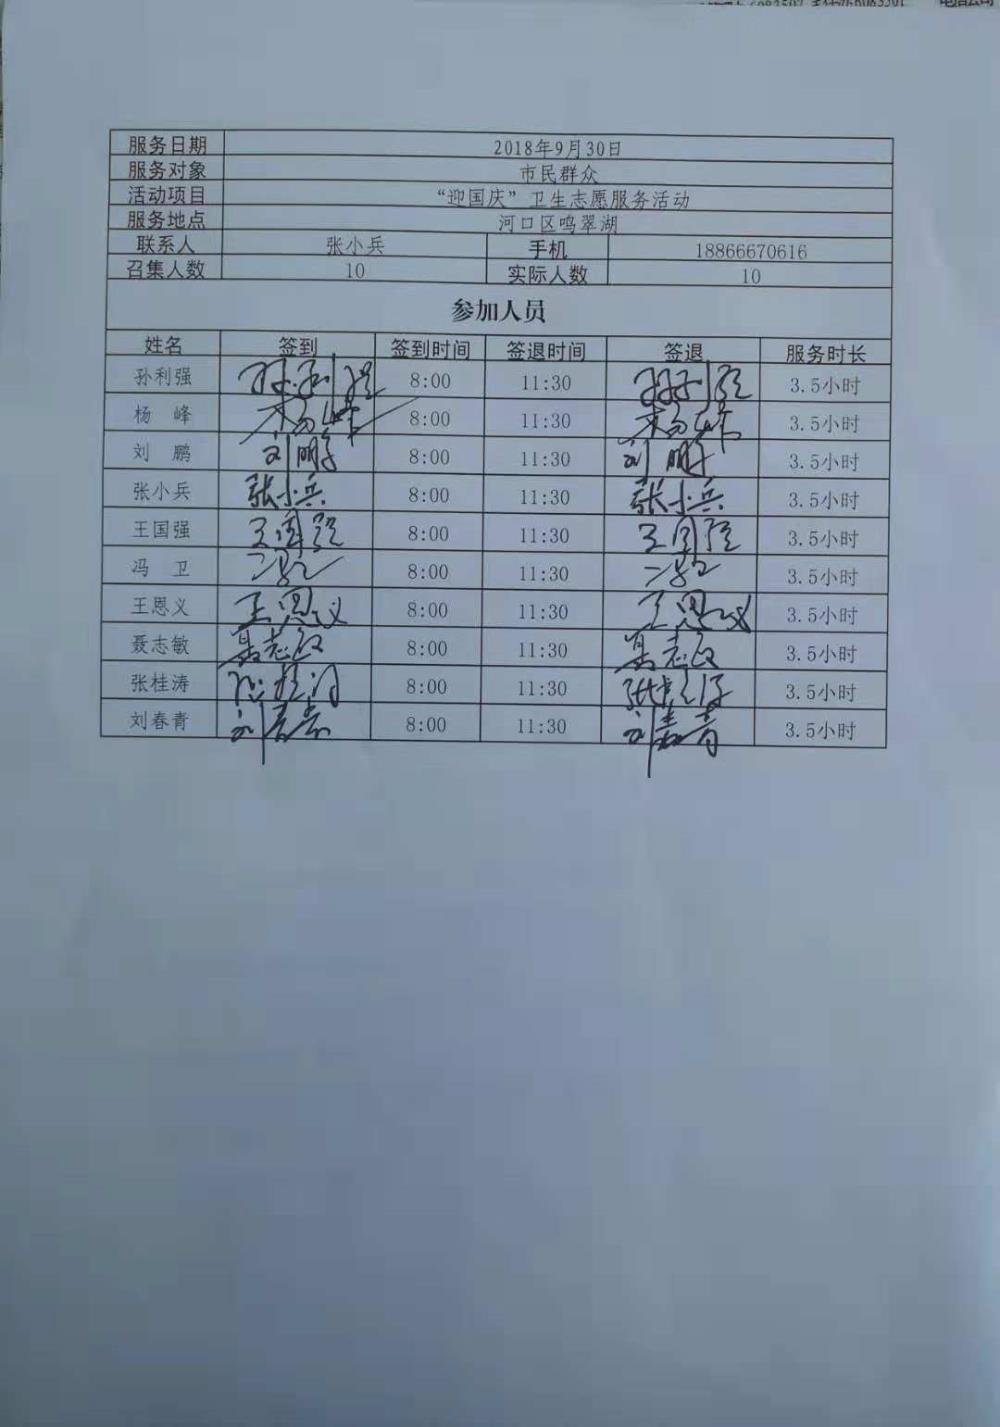 服务日期 2018年9月30日
服务对象 市民群众
活动项目 “迎国庆”卫生志愿服务活动
服务地点 河口区鸣翠湖
联系人 张小兵 手机 18866670616
召集人数 10 实际人数 10
参加人员
姓名 签到 签到时间 签退时间 签退 服务时长
孙利强 孙利强 8:00 11:30 孙利强 3.5小时
杨 峰 杨峰 8:00 11:30 杨峰 3.5小时
刘 鹏 刘鹏 8:00 11:30 刘鹏 3.5小时
张小兵 张小兵 8:00 11:30 张小兵 3.5小时
王国强 王国强 8:00 11:30 王国强 3.5小时
冯 卫 8:00 11:30 3.5小时
王恩义 王恩义 8:00 11:30 王恩义 3.5小时
聂志敏 聂志敏 8:00 11:30 聂志敏 3.5小时
张桂涛 张桂涛 8:00 11:30 张桂涛 3.5小时
刘春青 刘春青 8:00 11:30 刘春青 3.5小时